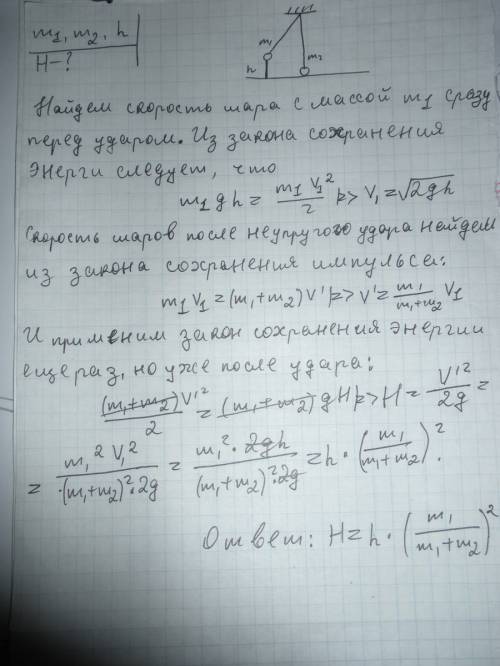 m₁, m₂, h
H-?
m₁
m₂
h
Найдем скорость шара с массой m₁ сразу
перед ударом. Из закона сохранения
энерги следует, что
m₁gh = m₁V₁²/2 => V₁ = √2gh
Скорость шаров после неупругого удара найдем
из закона сохранения импульса:
m₁V₁ = (m₁+m₂)V' => V' = m₁/(m₁+m₂) V₁
И применим закон сохранения энергии
еще раз, но уже после удара:
(m₁+m₂)V'²/2 = (m₁+m₂)gH => H = V'²/2g =
= m₁²V₁²/((m₁+m₂)²·2g) = m₁²·2gh/((m₁+m₂)²·2g) = h·(m₁/(m₁+m₂))².
Ответ: H = h·(m₁/(m₁+m₂))²